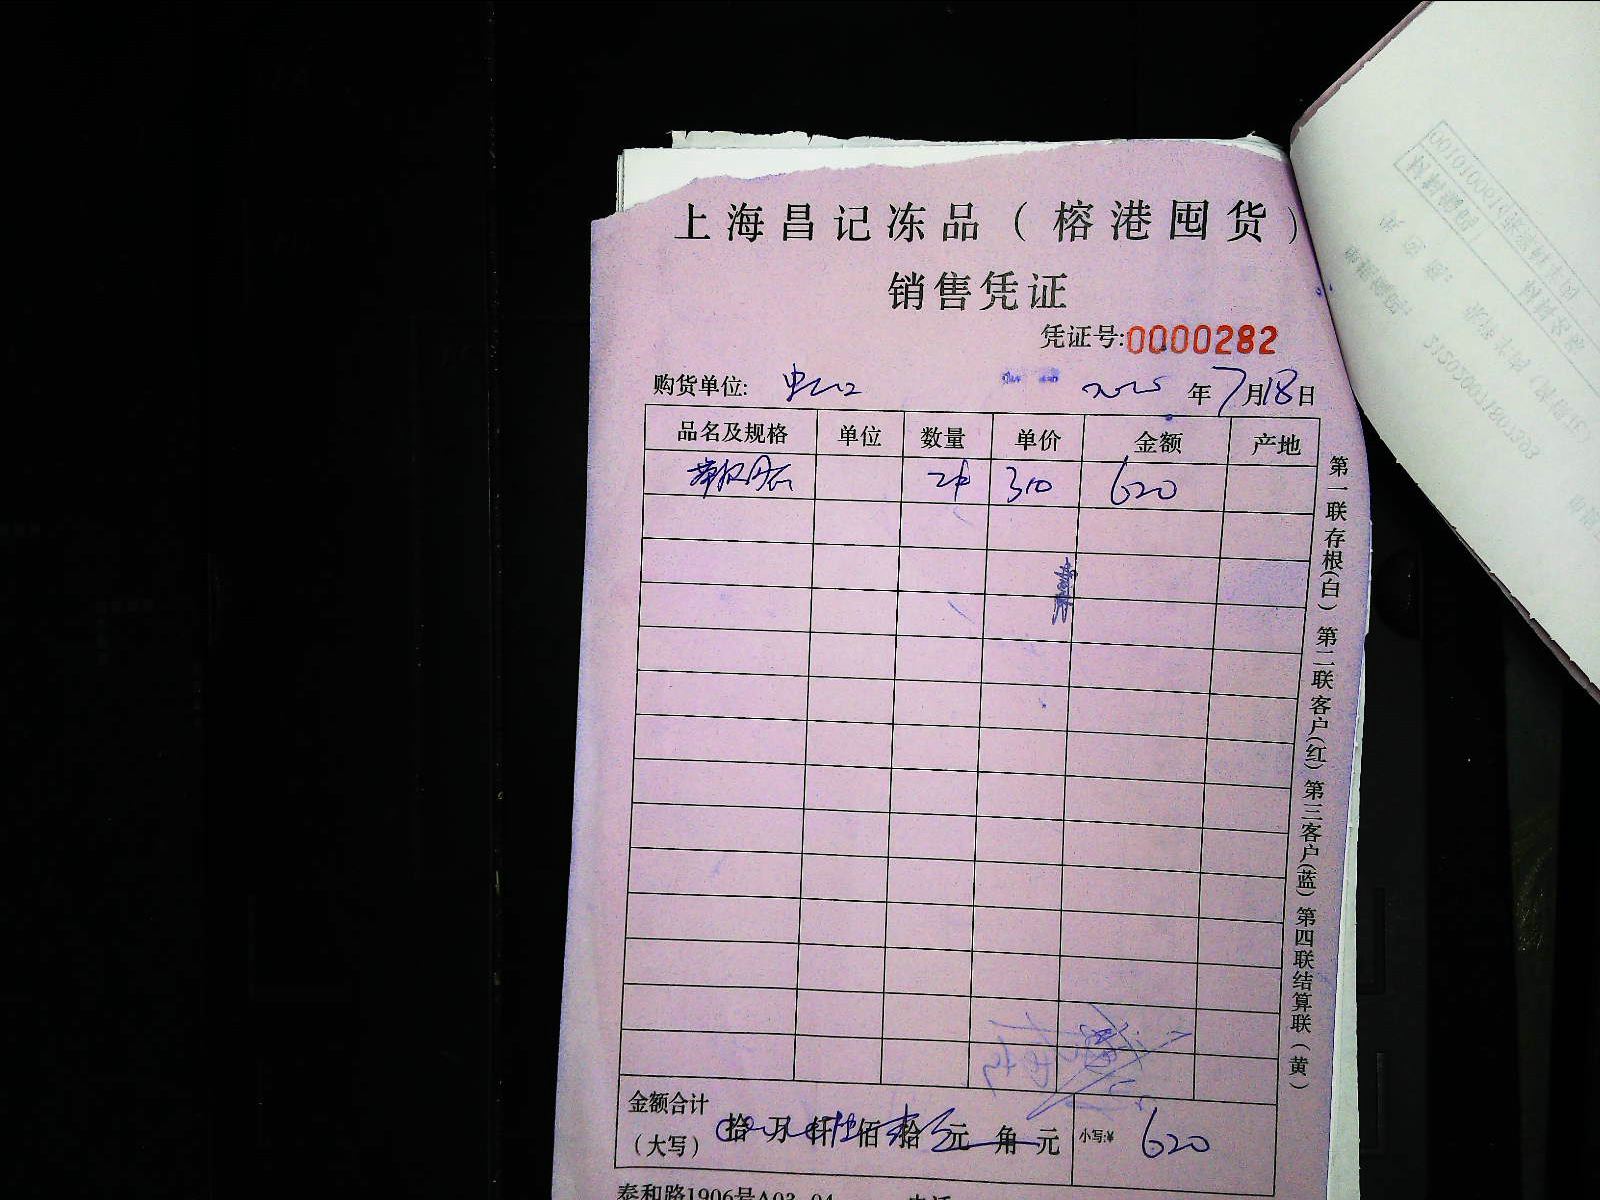 上海昌记冻品（榕港囤货）
销售凭证
凭证号:0000282
购货单位: 2025年7月18日
品名及规格 单位 数量 单价 金额 产地
2件 310 620
金额合计
（大写） 拾 万 仟 佰 拾 元 角 元 小写:¥ 620
泰和路1906号A03-04 电话
第一联存根(白) 第二联客户(红) 第三客户(蓝) 第四联结算联(黄)